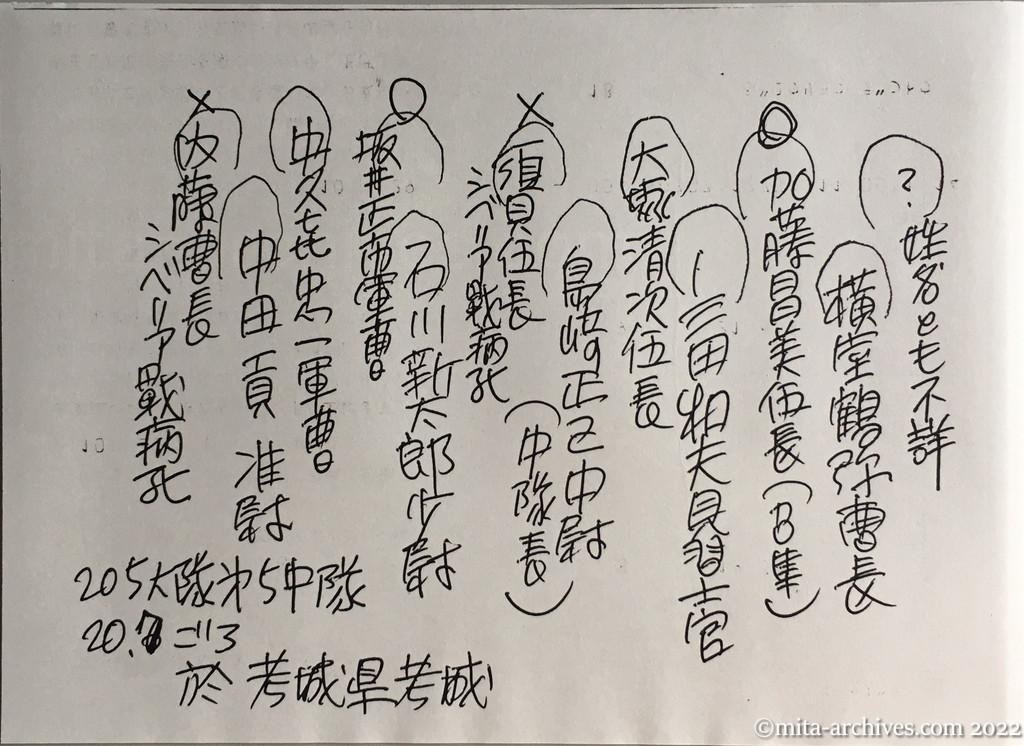 ? 姓名とも不詳
横堂鶴弥曹長
加藤昌美伍長(B隼)
三田相夫見習士官
大塚清次伍長
島崎正己中尉
(中隊長)
須貝伍長
シベリア戦病死
石川新太郎少尉
坂井正常軍曹
中久喜忠一軍曹
中田 貢 准尉
内藤曹長
シベリア戦病死
205大隊第5中隊
20.7ごろ
於 考城県考城
©mita-archives.com 2022